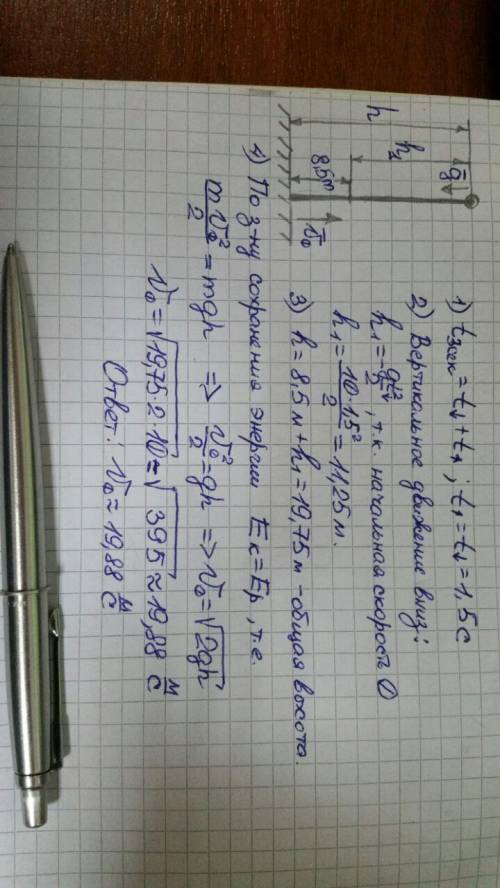 h
h₁
8,5м
g
v₀
1) t₃сек = t↓ + t↑ ; t↑ = t↓ = 1,5 с
2) Вертикальное движение вниз:
h₁ = gt↓²/2, т.к. начальная скорость 0
h₁ = 10·1,5²/2 = 11,25 м.
3) h = 8,5 м + h₁ = 19,75 м - общая высота.
4) По з-ну сохранения энергии Eк = Eр, т.е.
mv₀²/2 = mgh => v₀²/2 = gh => v₀ = √2gh
v₀ = √19,75·2·10 = √395 ≈ 19,88 м/с
Ответ: v₀ ≈ 19,88 м/с